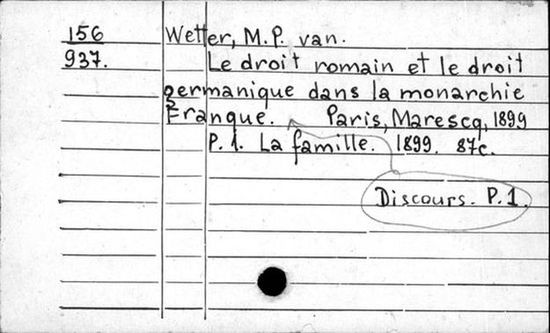 156 Wetter, M.P. van.
937. Le droit romain et le droit
germanique dans la monarchie
Franque. Paris, Marescq, 1899
P. 1. La famille. 1899. 87c.
Discours. P. 1.